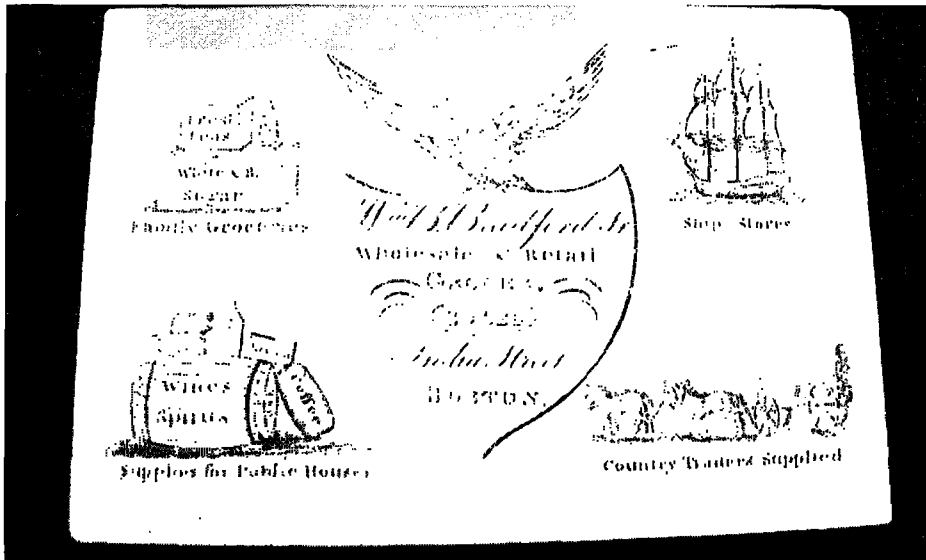 Teas
White & B.
Sugar
Family Groceries
Ship Stores
Bradford Jr
Wholesale & Retail
Grocer,
India Street
BOSTON.
Wines
Spirits
Coffee
Supplies for Public Houses
Country Traders Supplied